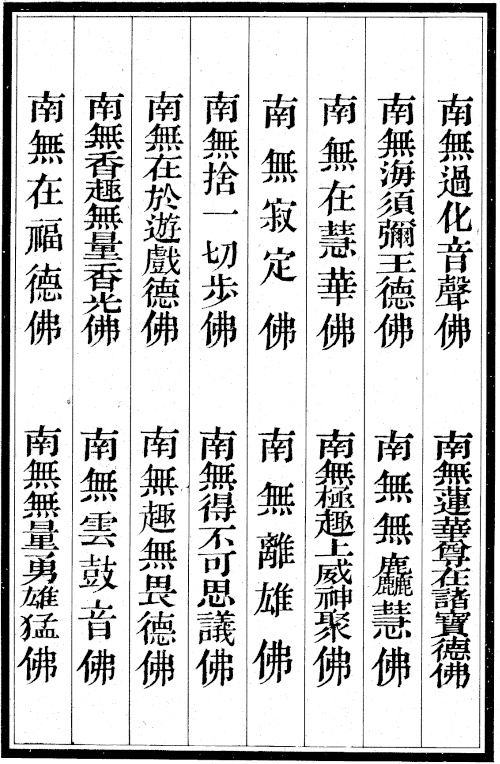 南無過化音聲佛
南無蓮華尊在諸寶德佛
南無海須彌王德佛
南無無麤慧佛
南無在慧華佛
南無極趣上威神聚佛
南無寂定佛
南無離雄佛
南無捨一切步佛
南無得不可思議佛
南無在於遊戲德佛
南無趣無畏德佛
南無香趣無量香光佛
南無雲鼓音佛
南無在福德佛
南無無量勇雄猛佛